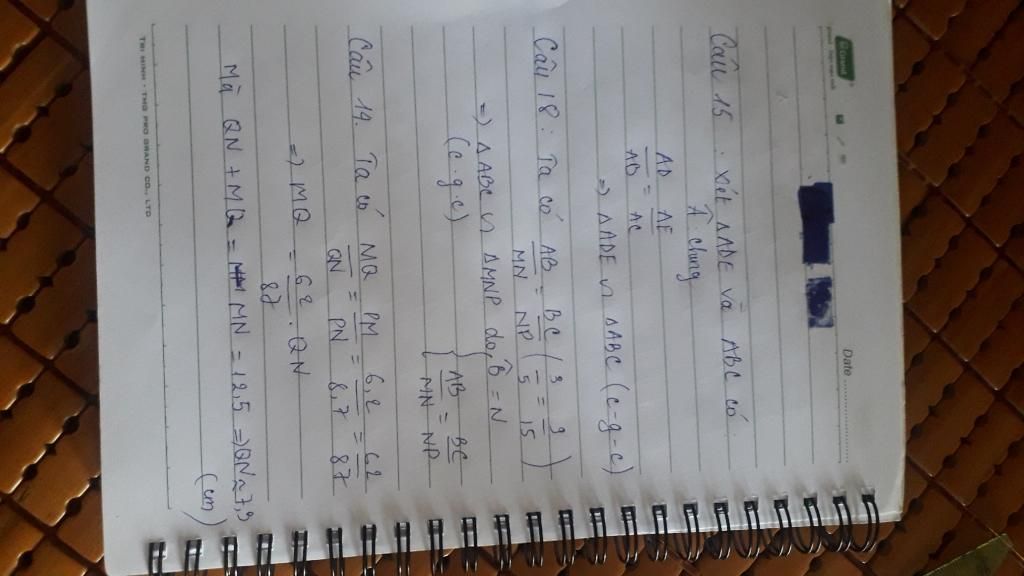 Date
Câu 15. Xét ΔADE và ABC có
 chung
AD/AB = AE/AC
=> ΔADE ∽ ΔABC (c-g-c)
Câu 18: Ta có AB/MN = BC/NP (3/5 = 9/15)
=> ΔABC ∽ ΔMNP do, B̂ = N
(c.g.c)
AB/MN = BC/NP
Câu 14. Ta có MQ/QN = PM/PN = 6,2/8,7 = 62/87
=> MQ = 62/87 . QN
Mà QN + MQ = MN = 12,5 => QN ≈ 7,3
(cm)
TRI MINH - TNG PRO GRAND CO., LTD